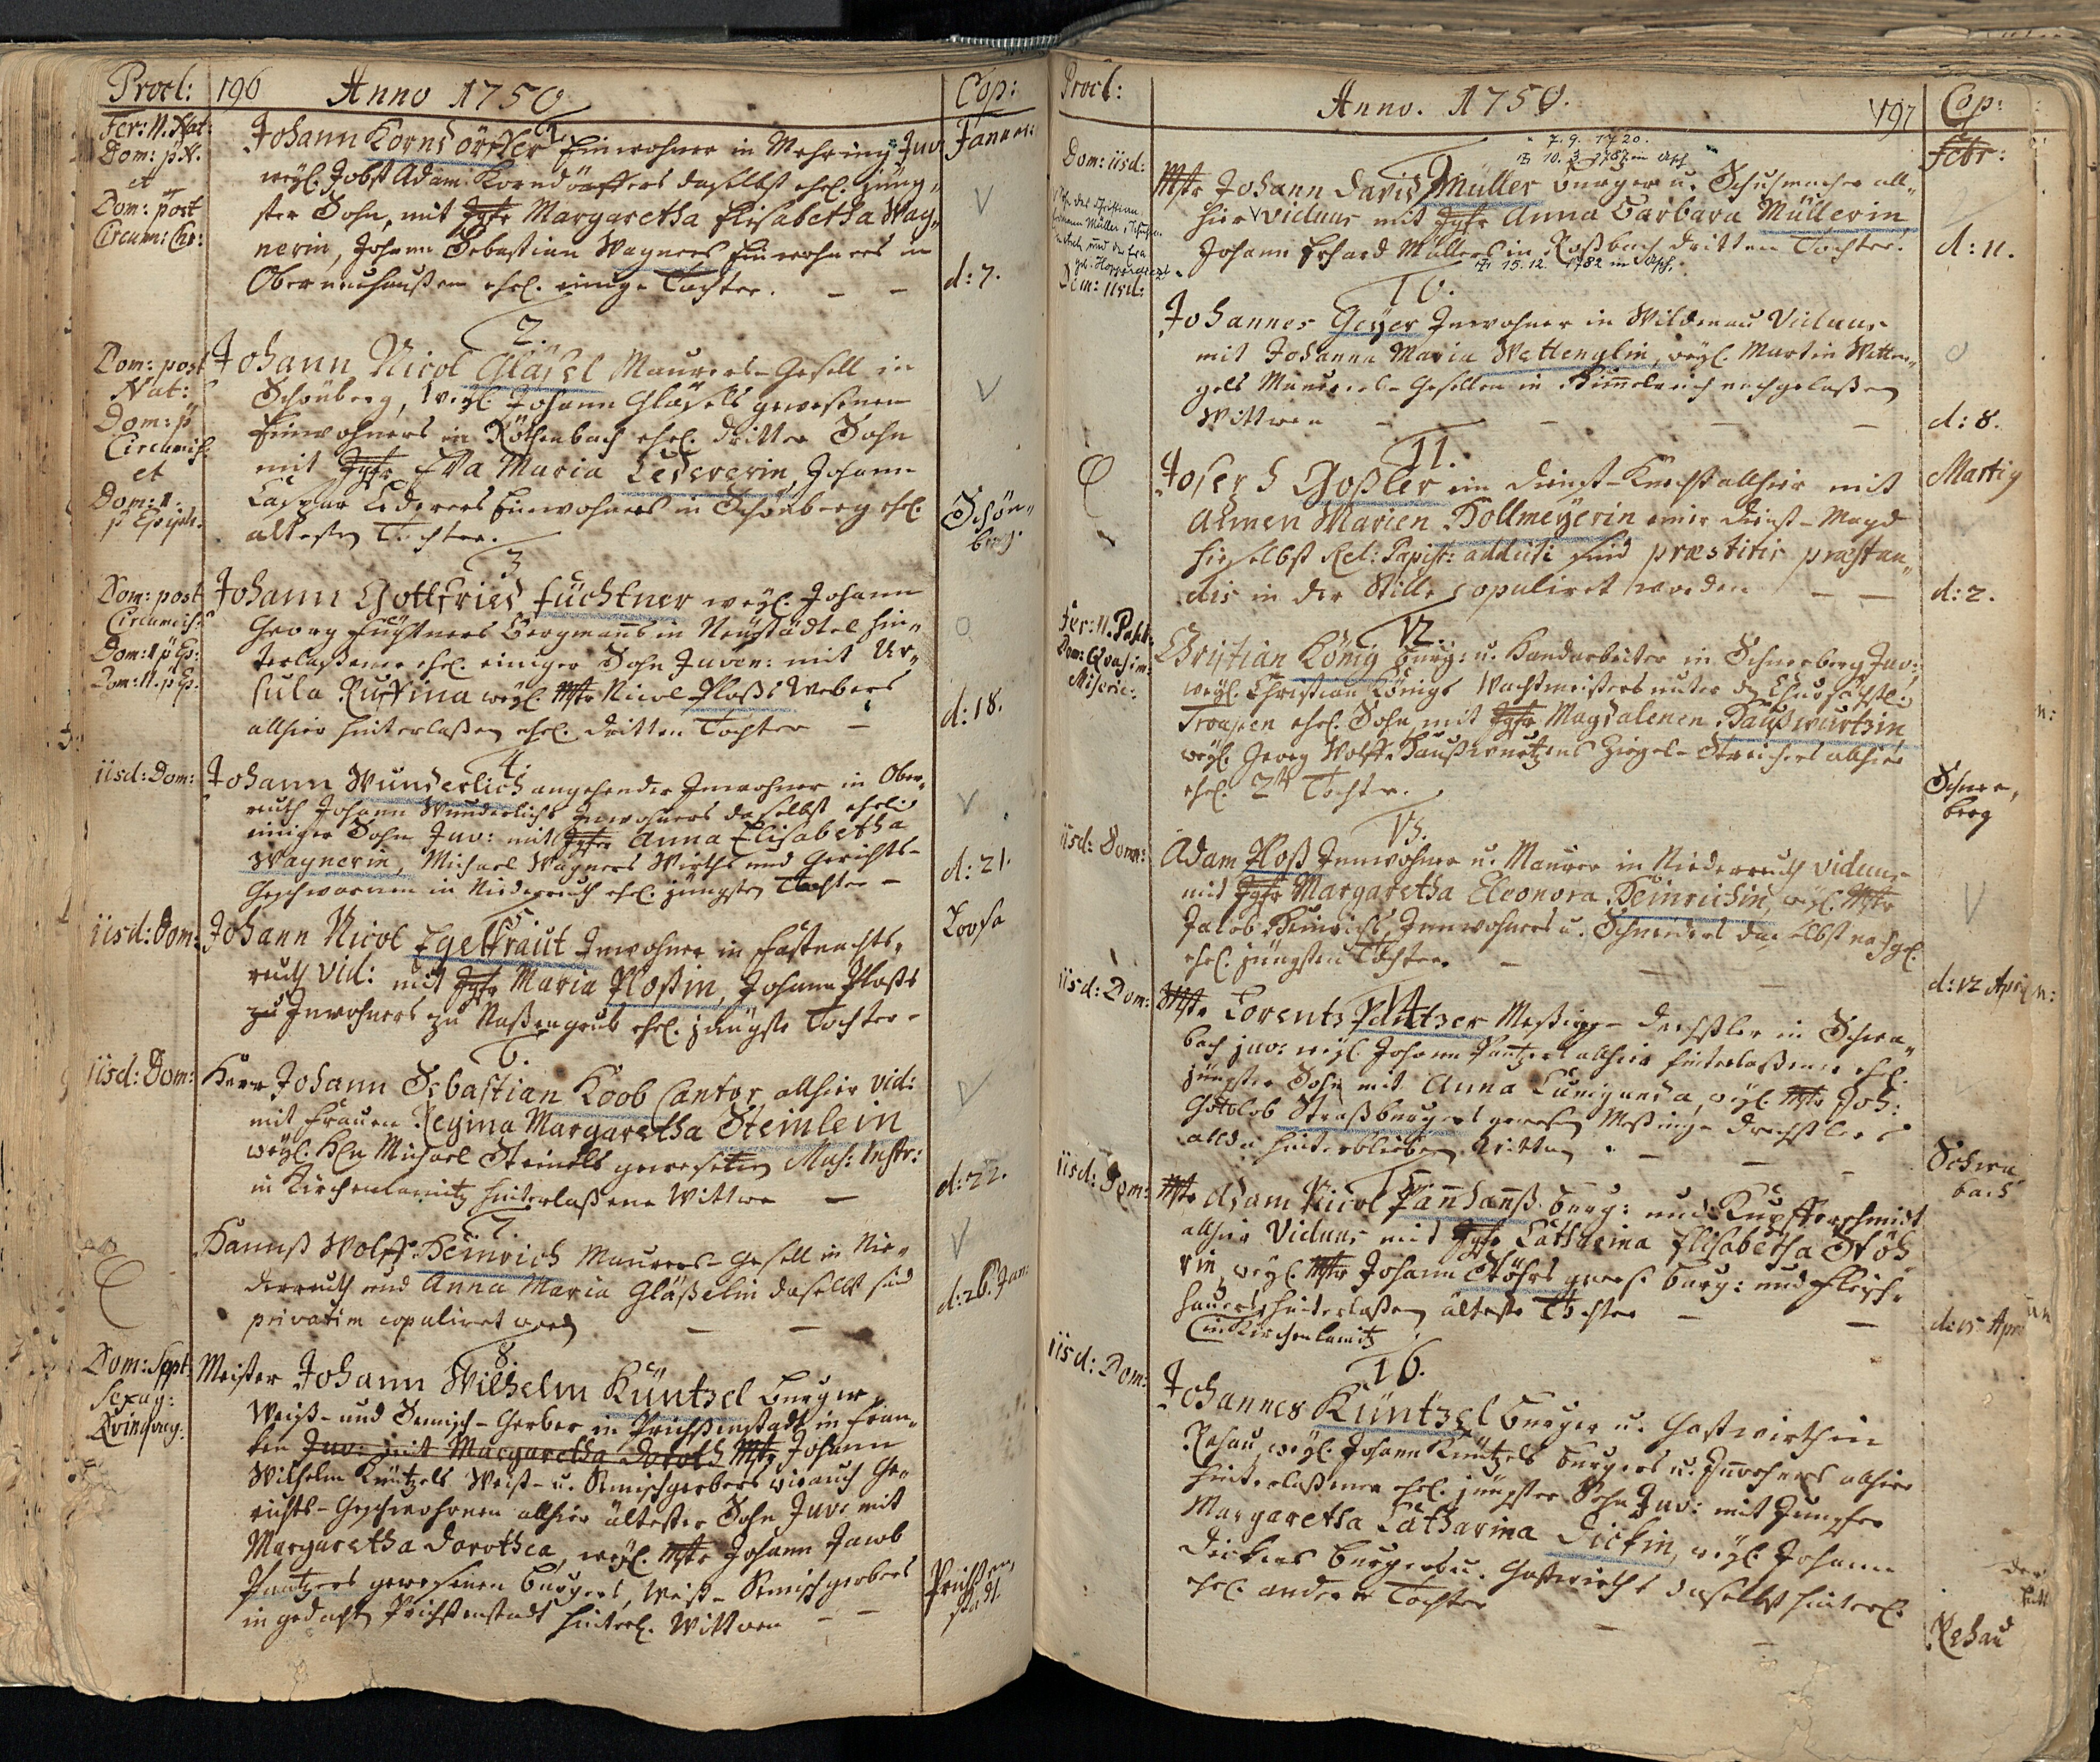 Procl: 196 Anno 1750. Cop:
Fer: II. Nat:
Dom: p. N.
et
Dom: post
Circum: Chr:
1.
Januar:
Johann Korndörffer Einwohner in Mehring Juv.
weyl. Jobst Adam Korndörffers daselbst ehel. jüng-
ster Sohn, mit Jgfr Margaretha Elisabetha Wag-
nerin, Johann Sebastian Wagners Einwohners in
Oberneuhaußen ehel. einige Tochter. — — d: 7.
2.
Dom: post
Nat:
Dom: p
Circumcis:
et
Dom: 1.
p Epiph.
Johann Nicol Gläsel Maurers-Gesell in
Schönberg, weyl. Johann Gläsels gewesenen
Einwohners in Röthenbach ehel. dritter Sohn
mit Jgfr Eva Maria Ledererin, Johann
Caspar Lederers Einwohners in Schönberg ehel.
ältesten Tochter.
Schön-
berg.
3
Dom: post
Circumcis:
Dom: I p Ep:
Dom: II. p Ep.
Johann Gottfried Füchtner weyl. Johann
Georg Füchtners Bergmanns in Neustädtel hin-
terlaßener ehel. einiger Sohn Juven: mit Ur-
sula Ruffina weyl. Mstr Nicol Ploß Webers
allhier hinterlaßen ehel. dritten Tochter — d: 18.
4.
iisd: Dom:
Johann Wunderlich angehender Inwohner in Ober-
reuth Johann Wunderlichs Inwohners daselbst ehel.
einiger Sohn Juv: mit Jgfr Anna Elisabetha
Wagnerin, Michael Wagners Wirths und Gerichts-
Geschwornen in Niederreuth ehel. jüngsten Tochter — d: 21.
5.
iisd: Dom:
Johann Nicol Egelkraut Inwohner in Fastnachts-
reuth vid: mit Jgfr Maria Ploßin, Johann Ploßs
zu Inwohners zu Naßengrub ehel. jüngste Tochter -
Loosa
6.
iisd: Dom:
Herr Johann Sebastian Koob Cantor allhier vid:
mit Frauen Regina Margaretha Steinlein
weyl. Hln Michael Steinels gewesenen Mus: Instr:
in Kirchenlamitz hinterlaßene Wittwe — d: 22.
7.
Hannß Wolff Heinrich Maurers-Gesell in Nie-
derreuth und Anna Maria Gläßelin daselbst sind
privatim copuliret word. — — d: 26. Jan:
8.
Dom: Sept:
Sexag:
Qvinqvag.
Meister Johann Wilhelm Küntzel Burger
Weiß- und Semisch-Gerber in Prichsenstadt in Fran-
ken Juv: mit Margaretha Doroth Mstr Johann
Wilhelm Küntzels Weiß- u. Semischgerbers wie auch Ge-
richts-Geschwohrnen allhier ältester Sohn Juv: mit
Margaretha Dorothea, weyl. Mstr Johann Jacob
Pantzers gewesenen Burgers, Weiß-Semischgerbers
in gedacht Prichsenstadt hinterl. Wittwen — —
Prichsen-
stadt.
Procl: Anno. 1750. 197 Cop:
Febr:
* 7. 9. 1720.
10. 3. 1787 in Asch.
9.
Dom: iisd:
Mstr Johann David Müller Burger u. Schuhmacher all-
hier viduus mit Jgfr Anna Barbara Müllerin
Johann Erhard Müllers in Roßbach dritten Tochter. d: 11.
15. 12. 1782 in Asch.
10.
Dom: iisd:
Johannes Geyer Inwohner in Wildenau Viduus
mit Johanna Maria Wettenglin, weyl. Martin Wetten-
gels Maurers-Gesellen in Himmelreich nachgelaßen
Wittwen — — — — d: 8.
11.
Joseph Goßler ein Dienst-Knecht allhier mit
Annen Marien Hollmeyerin einer Dienst-Magd
hieselbst Rel: Papist: addicti sind præstitis præstan-
dis in der Stille copuliret worden — —
Martij
d: 2.
12.
Fer: II. Pasch:
Dom: Qvasim:
Miseric:
Christian König Burg: u. Handarbeiter in Schneeberg Juv:
weyl. Christian Königs Wachtmeisters unter d. Churf.
Troupen ehel. Sohn, mit Jgfr Magdalenen Haußwurtzin
weyl. Georg Wolff Haußwurtzens Ziegel-Streichers allhier
ehel. 2te Tochter.
Schnee-
berg
13.
iisd: Dom:
Adam Ploß Innwohner u. Maurer in Niederreuth viduus
mit Jgfr Margaretha Eleonora Heinrichin, weyl. Mstr
Jacob Heinrichs, Innwohners u. Schneiders daselbst nachgel.
ehel. jüngsten Tochter. — d: 12 April
14
iisd: Dom:
Mstr Lorentz Pantzer Meßing-Drechsler in Schwa-
bach juv: weyl. Johann Pantzers allhier hinterlaßener ehel.
jüngster Sohn mit Anna Cunigunda, weyl. Mstr Joh:
Gottlob Straßburgers gewesen Meßing-Drechslers
allda hinterbliebene Wittwe. — —
Schwa-
bach
15
iisd: Dom:
Mstr Adam Nicol Panhanß Burg: und Kupfferschmidt
allhier Viduus mit Jgfr Catharina Elisabetha Stöh-
rin, weyl. Mstr Johann Stöhrs gewes. Burg: und Fleisch-
hauers hinterlaßen ältesten Tochter — —
in Kirchenlamitz
d: 15. Apr
16.
iisd: Dom:
Johannes Küntzel Burger u. Gastwirth in
Rehau, weyl. Johann Küntzels Burgers u. Innwohners allhier
hinterlaßener ehel. jüngster Sohn Juv: mit Jungfer
Margaretha Catharina Dickin, weyl. Johann
Dickens Burgers u. Gastwirths daselbst hinterl.
ehel. anderte Tochter — —
Rehau